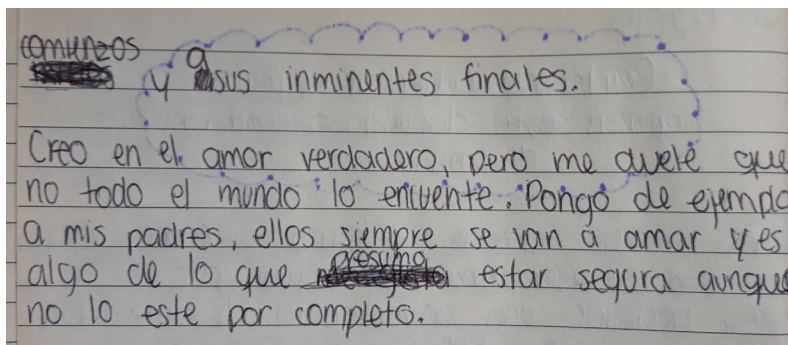 comienzos
y a sus inminentes finales.
Creo en el amor verdadero, pero me duele que
no todo el mundo lo encuentre. Pongo de ejemplo
a mis padres, ellos siempre se van a amar y es
algo de lo que presumo estar segura aunque
no lo este por completo.